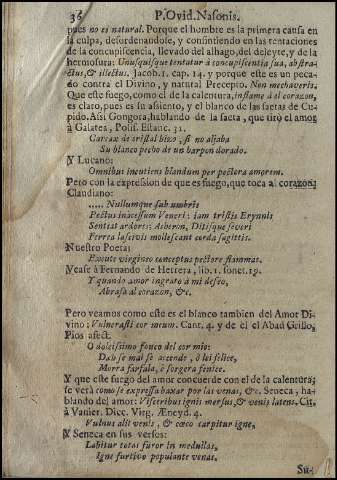 36 P. Ovid. Nasonis.
pues no es natural. Porque el hombre es la primera causa en
la culpa, desordenandose, y consintiendo en las tentaciones
de la concupiscencia, llevado del alhago, del deleyte, y de la
hermosura: Unusquisque tentatur à concupiscentia sua, abstra-
ctus, & illectus. Jacob. 1. cap. 14. y porque este es un peca-
do contra el Divino, y natural Precepto. Non mechaveris.
Que este fuego, como el de la calentura, inflame à el corazon,
es claro, pues es su assiento, y el blanco de las saetas de Cu-
pido. Assi Gongora, hablando de la saeta, que tirò el amor
à Galatea, Polif. Estanc. 31.
Carcax de cristal hizo, si no aljaba
Su blanco pecho de un harpon dorado.
Y Lucano:
Omnibus incutiens blandum per pectora amorem.
Pero con la expresion de que es fuego, que toca al corazon;
Claudiano:
..... Nullumque sub umbris
Pectus inacessum Veneri: iam tristis Erynnis
Senteat ardores: Acheron, Ditisque severi
Ferrea lascivis mollescant corda sagittis.
Nuestro Poeta:
Excute virgineo conceptus pectore flammas.
Vease à Fernando de Herrera, lib. 1. sonet. 19.
Y quando amor ingrato à mi deseo,
Abrasa al corazon, &c.
Pero veamos como este es el blanco tambien del Amor Di-
vino: Vulnerasti cor meum. Cant. 4. y de el el Abad Grillo,
Pios afect.
O dolcissimo fouco del cor mio:
Dab se mai se accende, ò lei felice,
Morra farfala, è sorgera fenice.
Y que este fuego del amor concuerde con el de la calentura;
se verà como se expressa baxar por las venas, &c. Seneca, ha-
blando del amor: Visceribus ignis mersus, & venis latens. Cit.
à Vanier. Dicc. Virg. Æneyd. 4.
Vulnus alit venis, & cœco carpitur igne,
Y Seneca en sus versos:
Labitur totas furor in medullas,
Igne furtivo populante venas.
Su-